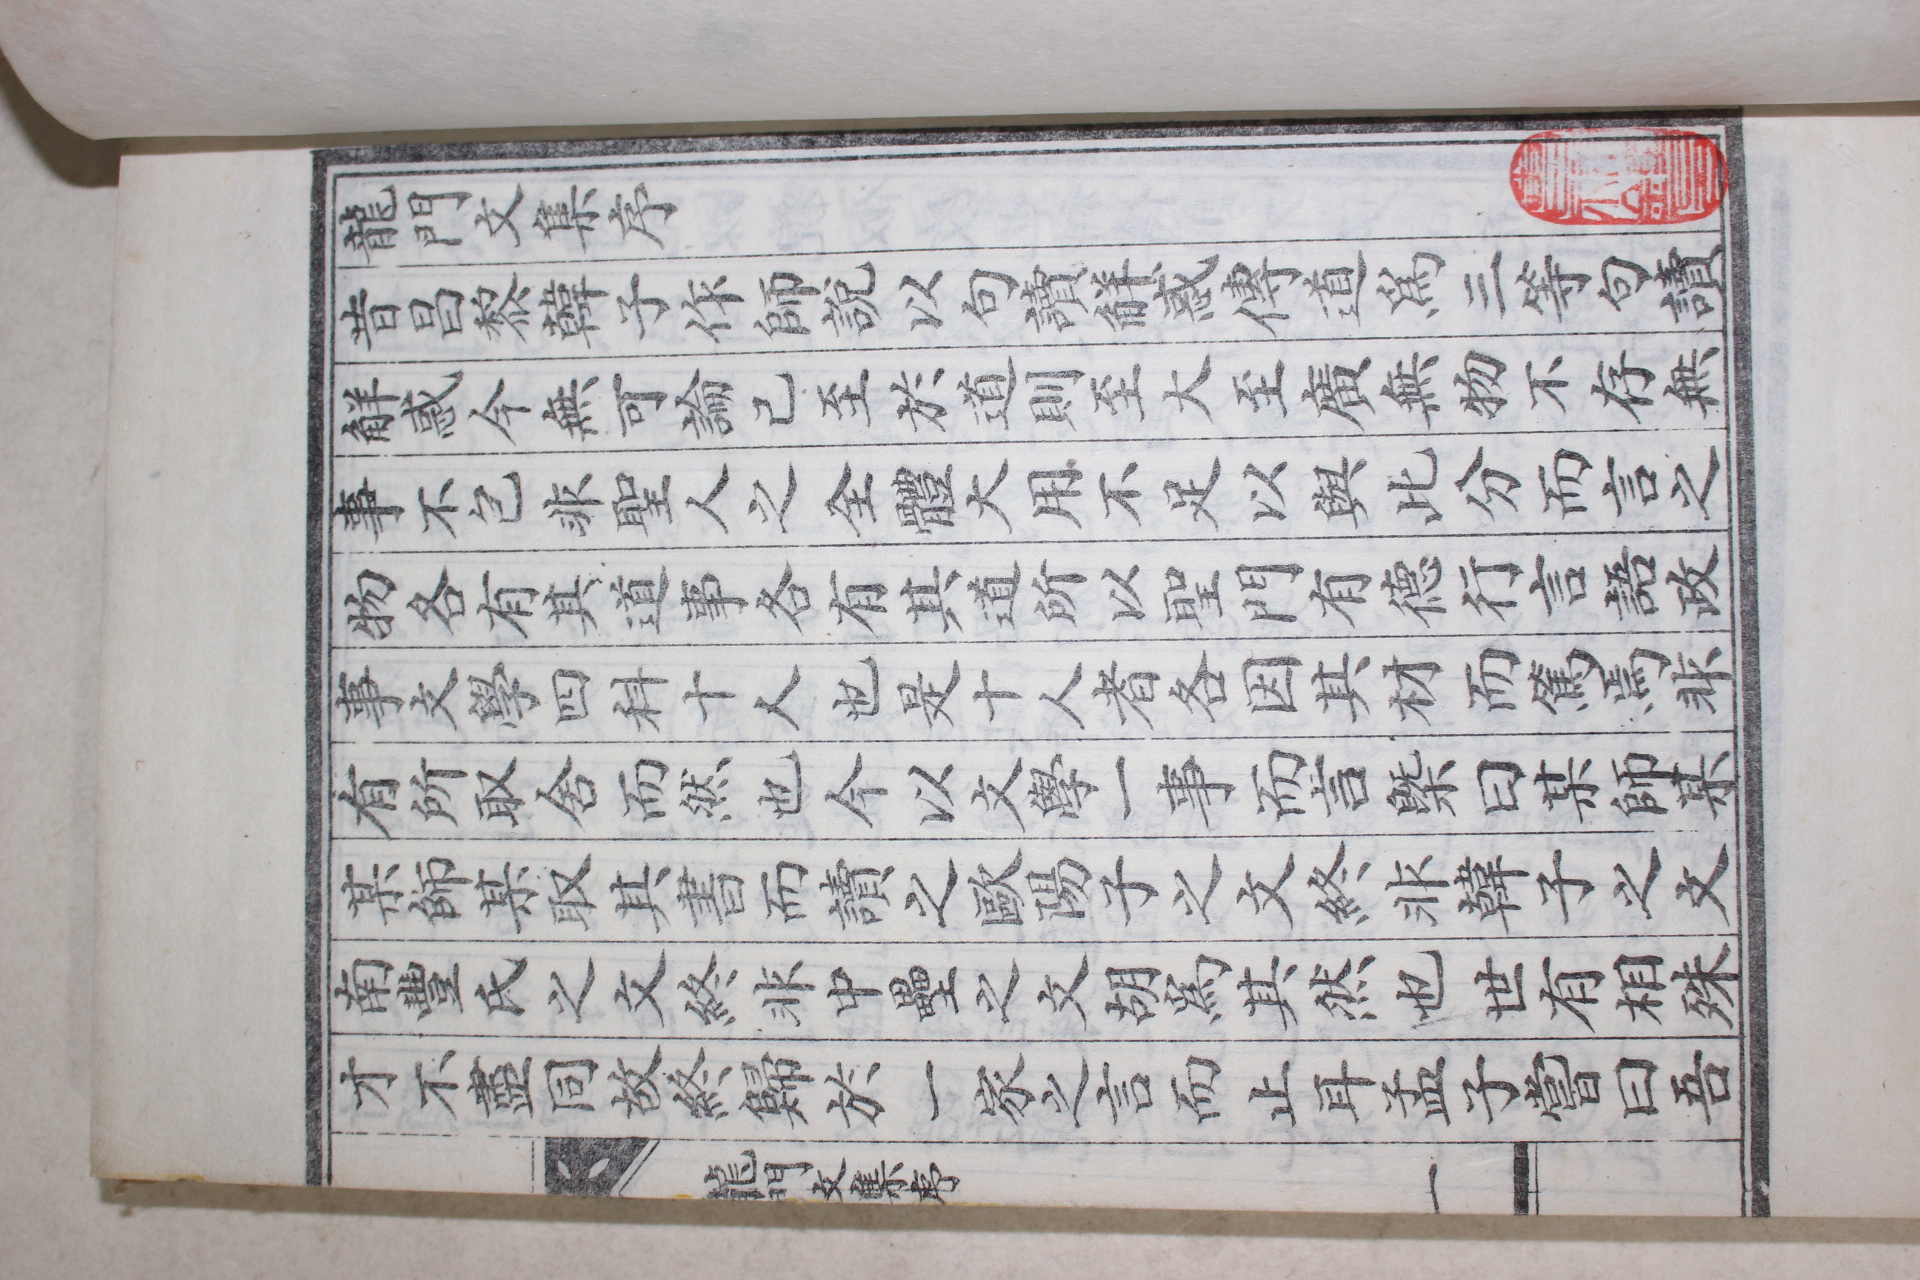 龍門文集序
昔昌黎韓子作師說以句讀解惑傳道爲三等句讀
解惑今無可論已至於道則至大至廣無物不存無
事不包非聖人之全體大用不足以與比分而言之
物各有其道事各有其道所以聖門有德行言語政
事文學四科十人也是十人者各因其材而篤焉非
有所取舍而然也今以文學一事而言槩曰某師某
某師某取其書而讀之歐陽子之文終非韓子之文
南豐氏之文終非中壘之文胡爲其然也世有相殊
才不盡同故終歸於一家之言而止耳孟子嘗曰吾
龍門文集序
一